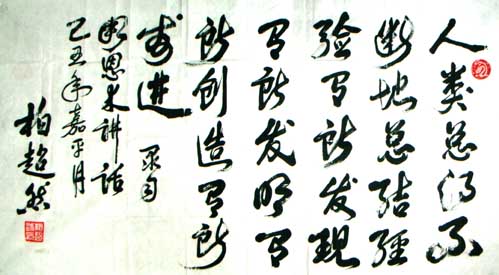 人类总得不
断地总结经
验有所发现
有所发明有
所创造有所
前进 录自
周恩来讲话
己丑年嘉平月
柏超然